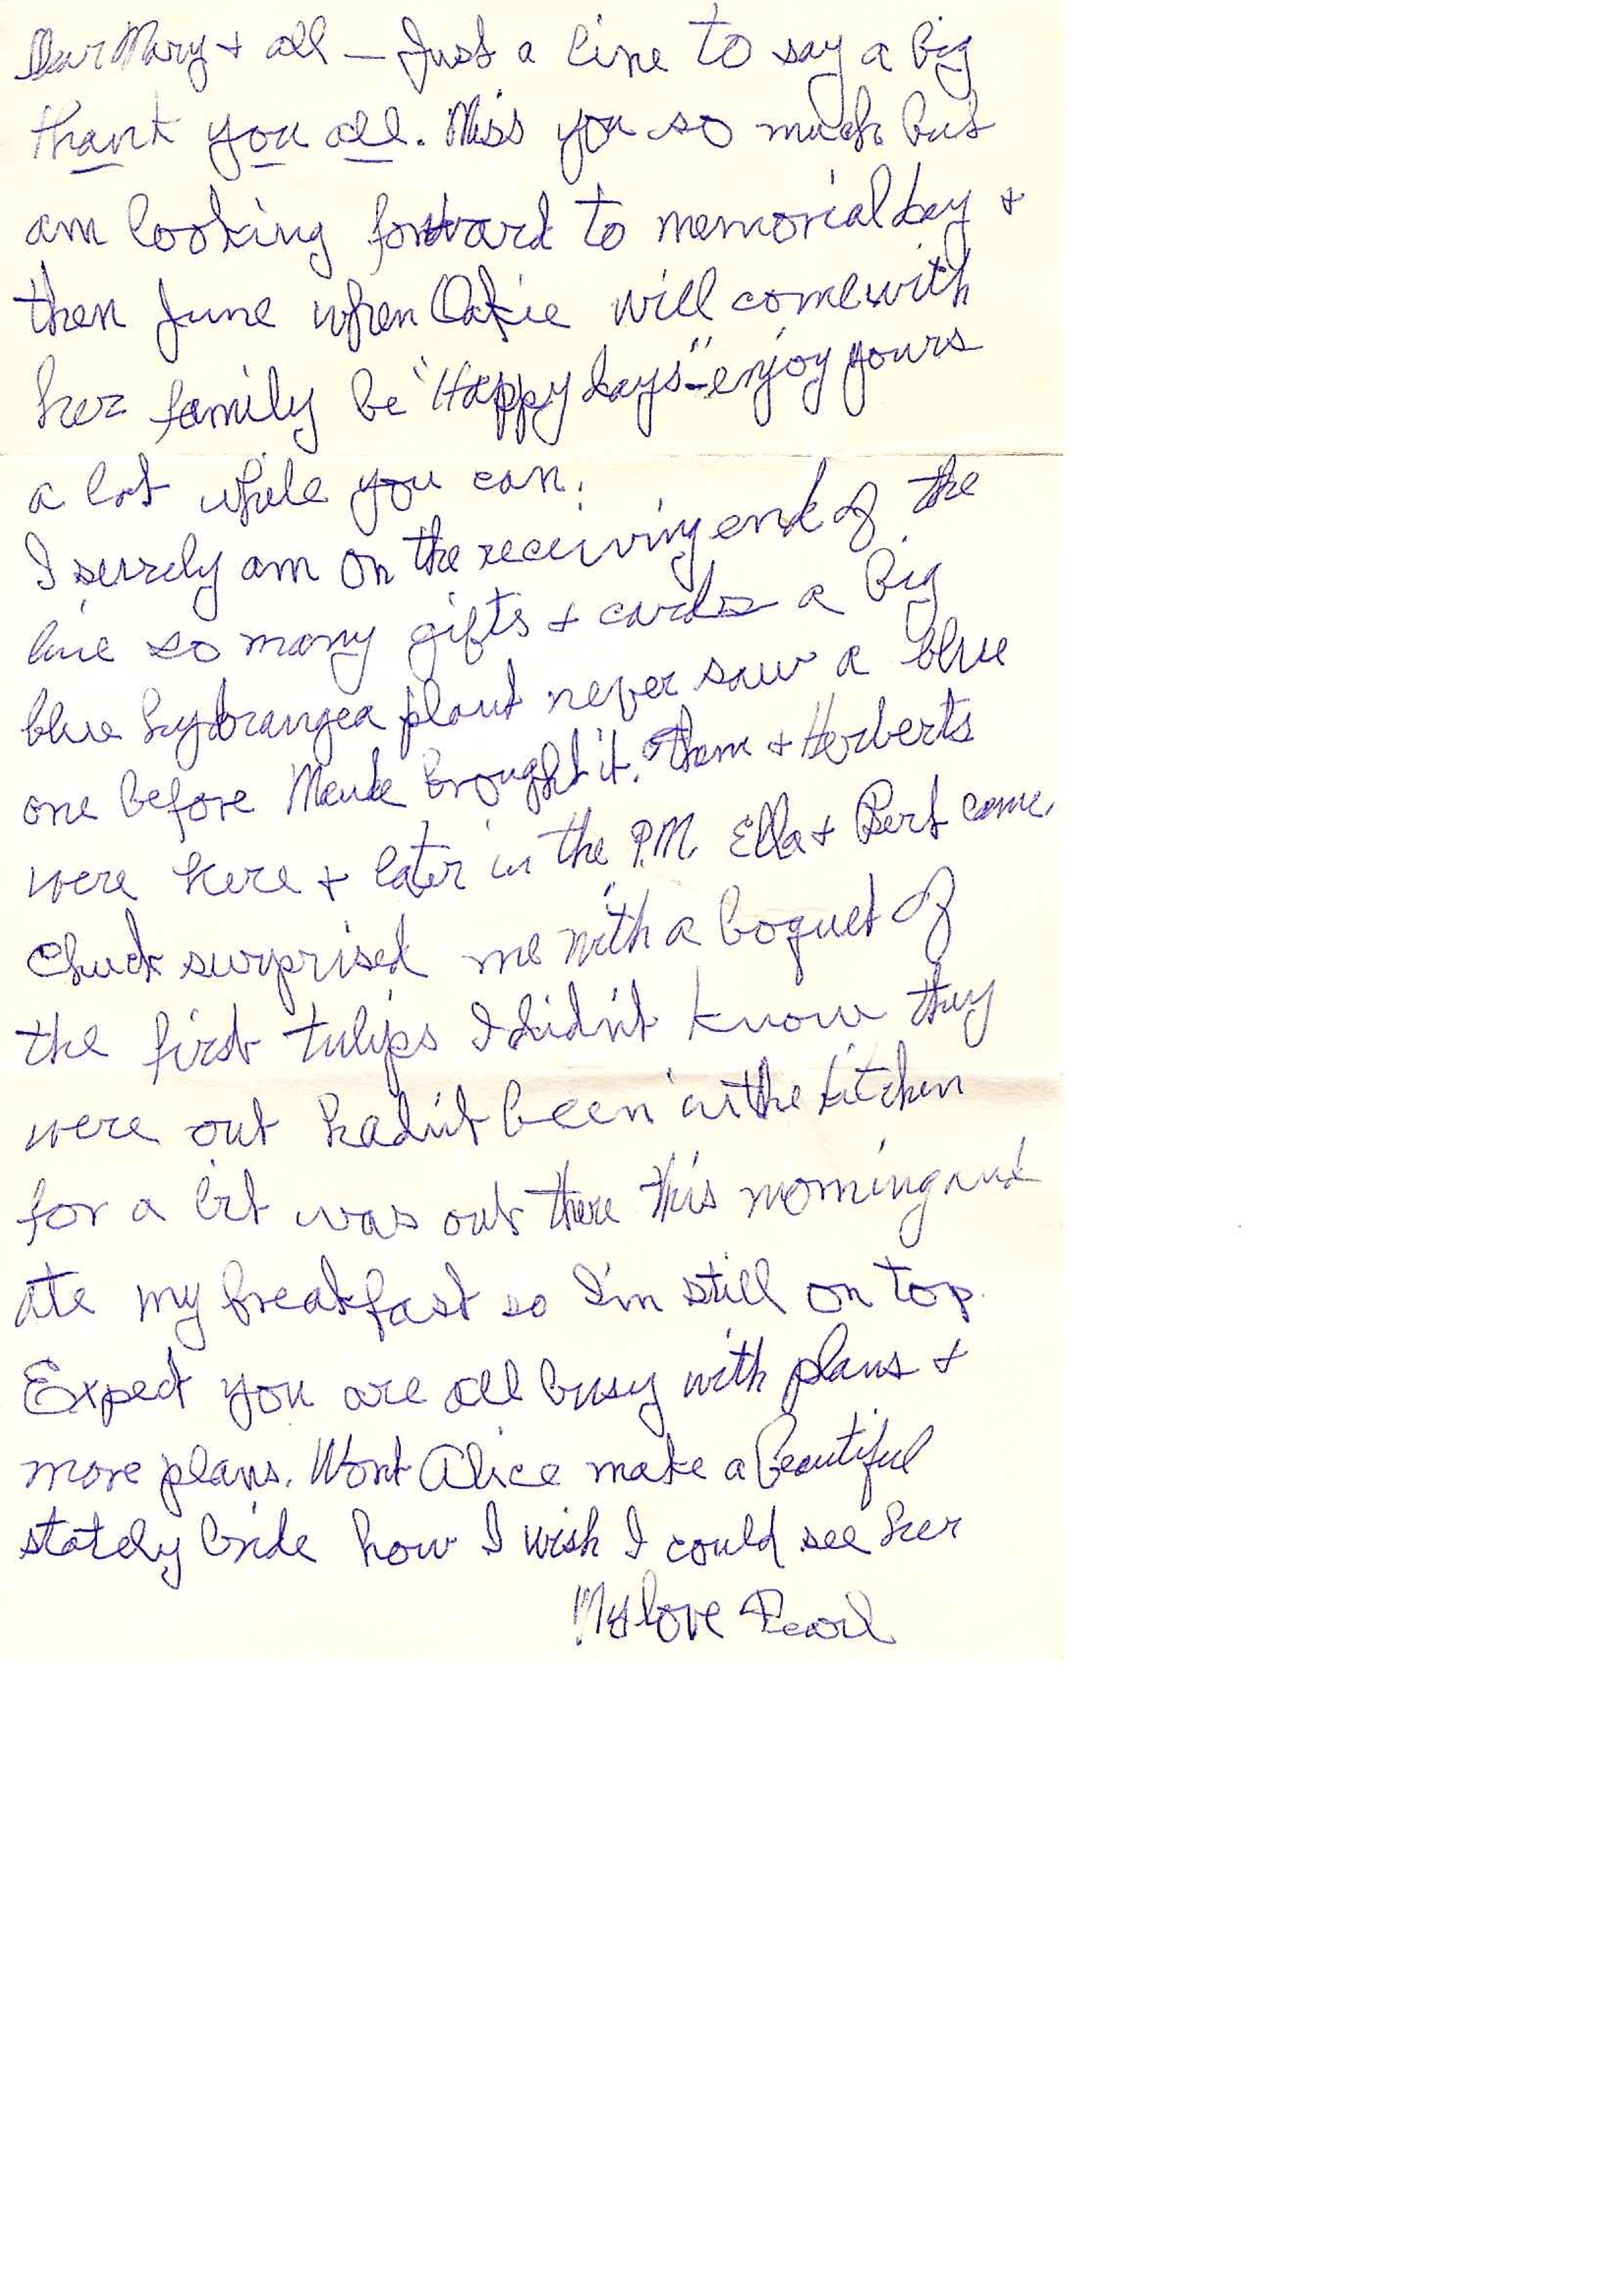 Dear Mary + all — Just a line to say a big
thank you all. Miss you so much but
am looking forward to memorial day +
then June when Oakie will come with
her family be "Happy days" - enjoy yours
a lot while you can.
I surely am on the receiving end of the
line so many gifts + cards a big
blue hydrangea plant never saw a blue
one before Maude brought it. Them + Herberts
were here + later in the P.M. Ella + Bert came.
Chuck surprised me with a boquet of
the first tulips I didn't know they
were out hadn't been in the kitchen
for a bit was out there this morning and
ate my breakfast so I'm still on top.
Expect you are all busy with plans +
more plans. Wont Alice make a beautiful
stately bride how I wish I could see her
My love Pearl